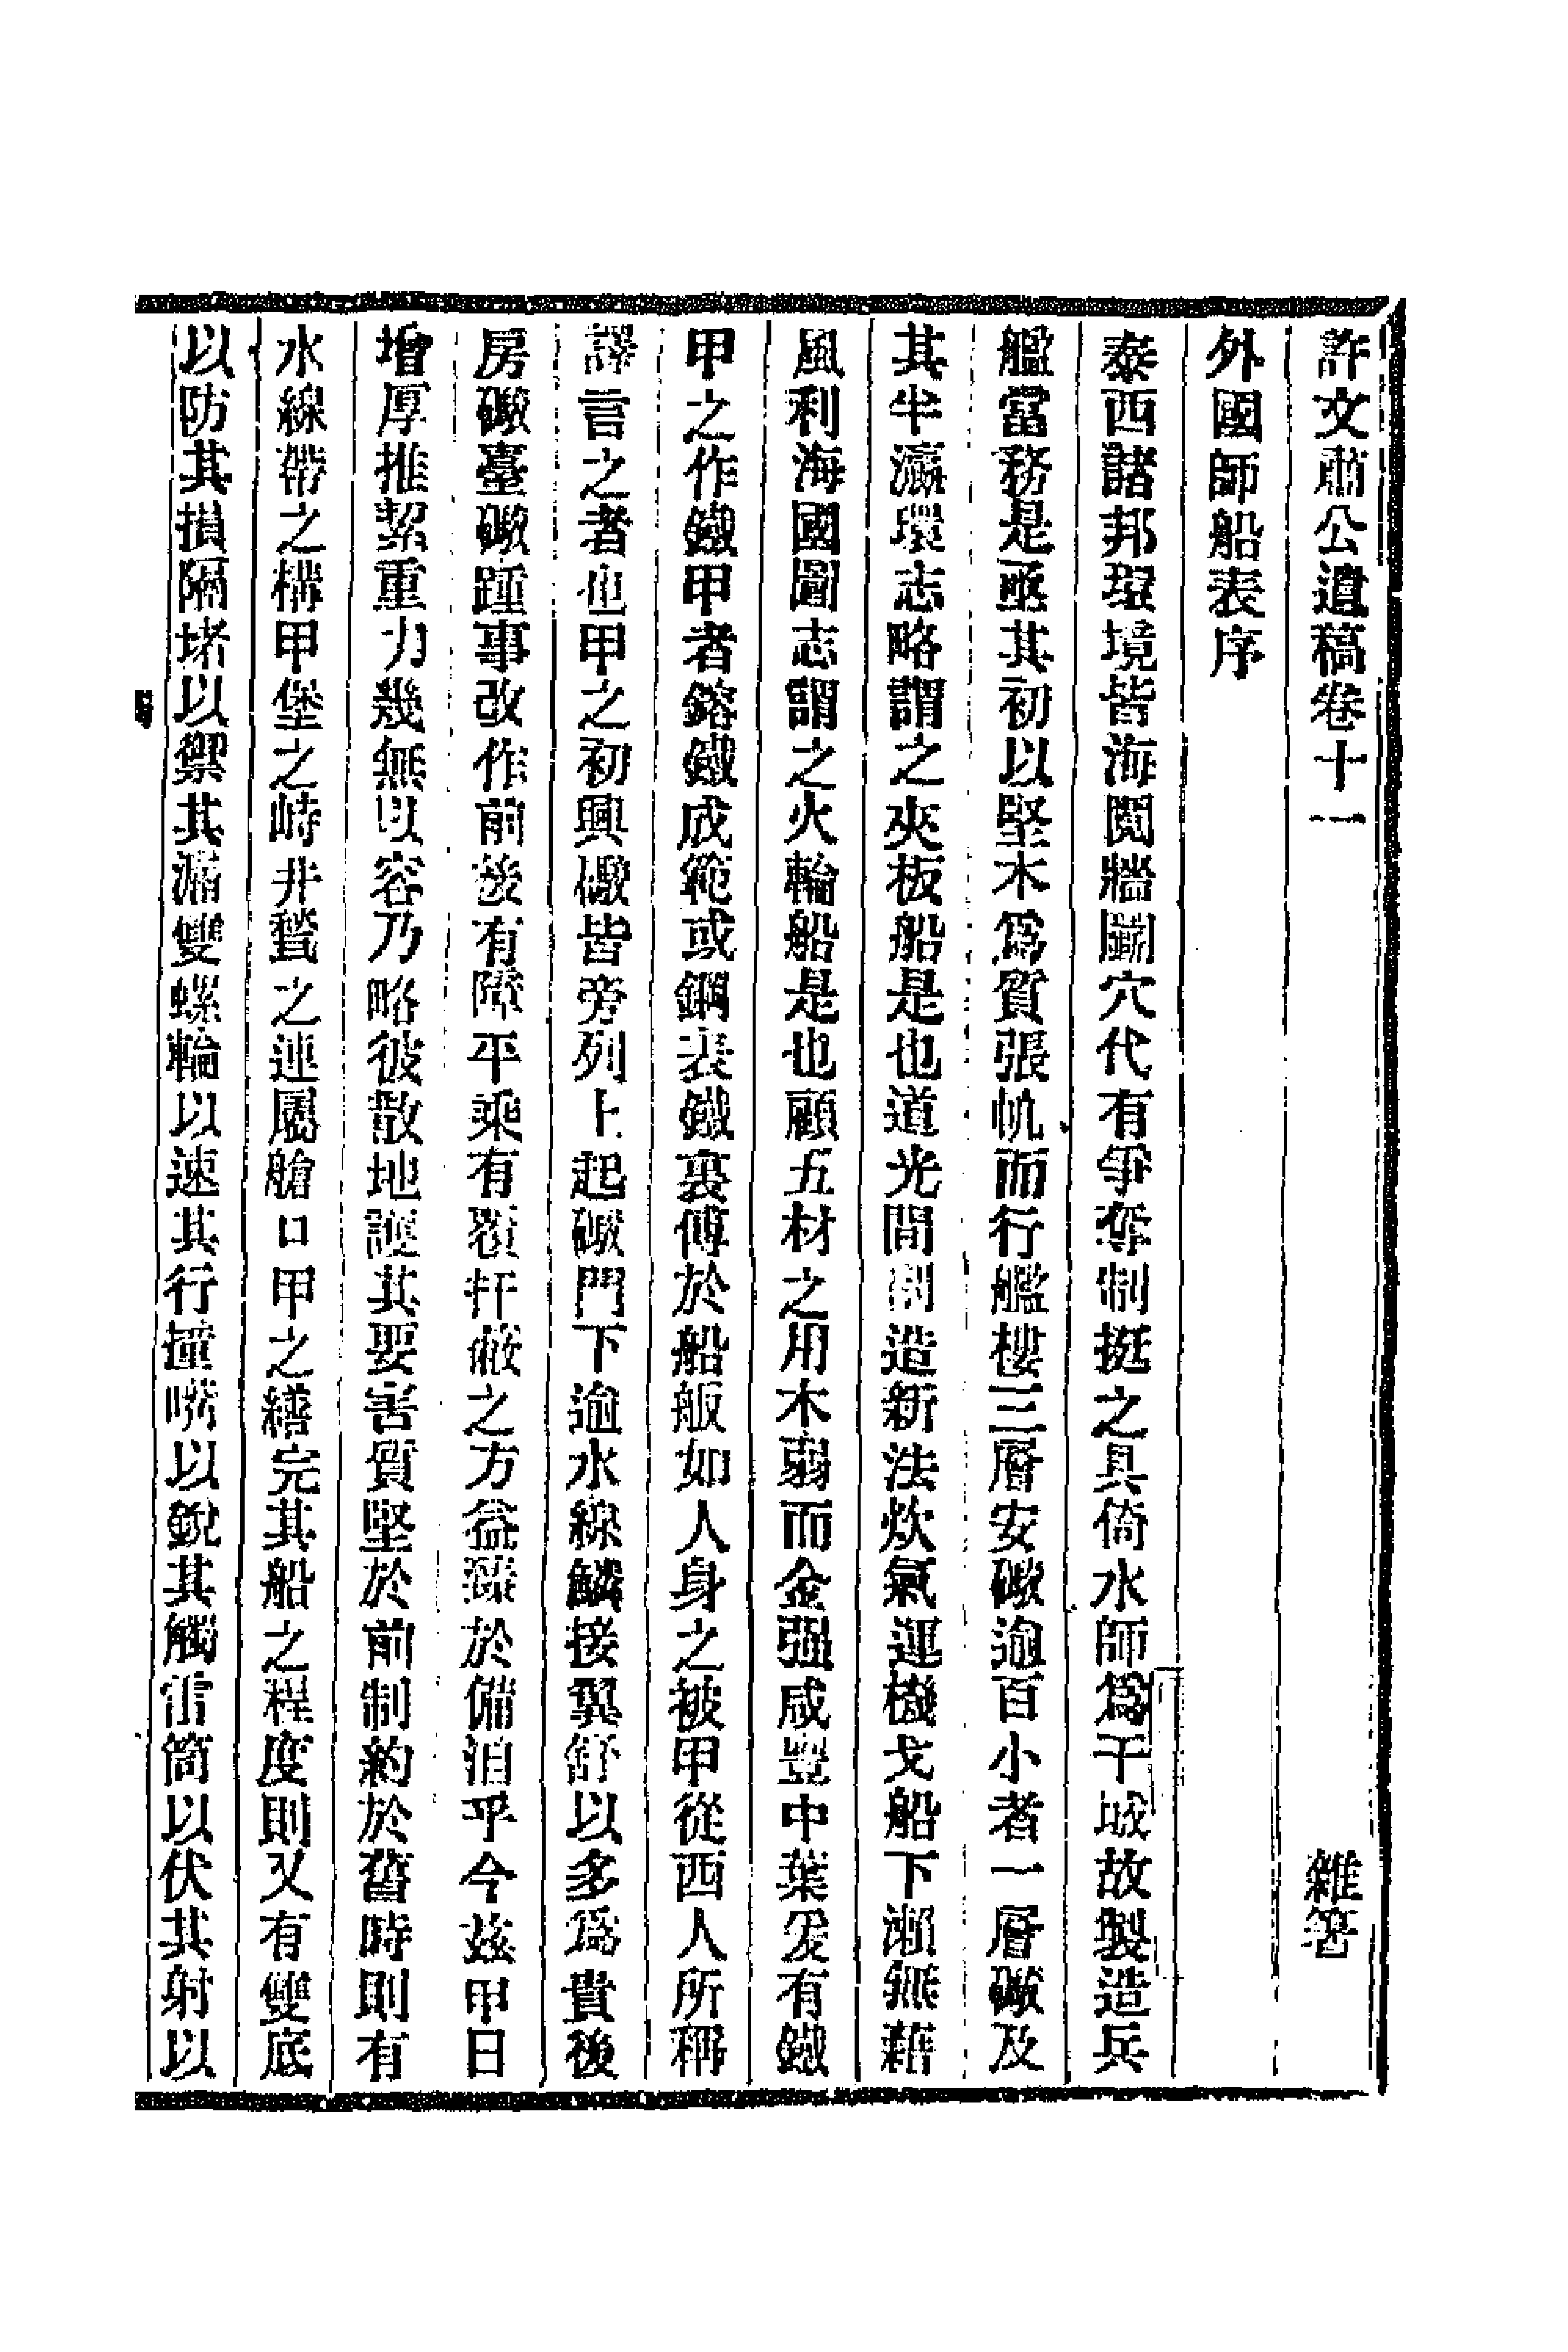 許文肅公遺稿卷十一 雜箸
外國師船表序
泰西諸邦環境皆海鬩牆鬭穴代有爭奪制挺之具倚水師爲干城故製造兵
艦當務是亟其初以堅木爲質張帆而行艦樓三層安礮逾百小者一層礮及
其半瀛環志略謂之夾板船是也道光間剏造新法炊氣運機戈船下瀨無藉
風利海國圖志謂之火輪船是也顧五材之用木弱而金强咸豐中葉爰有鐵
甲之作鐵甲者鎔鐵成範或鋼表鐵裏傅於船舨如人身之被甲從西人所稱
譯言之者也甲之初興礮皆旁列上起礮門下逾水線鱗接翼舒以多爲貴後
房礮臺礮踵事改作前後有障平乘有覆扞蔽之方益臻於備洎乎今茲甲日
增厚推絜重力幾無以容乃略彼散地護其要害質堅於前制約於舊時則有
水線帶之構甲堡之峙井甃之連屬艙口甲之繕完其船之程度則又有雙底
以防其損隔堵以禦其漏雙螺輪以速其行撞嘴以銳其觸雷筒以伏其射以